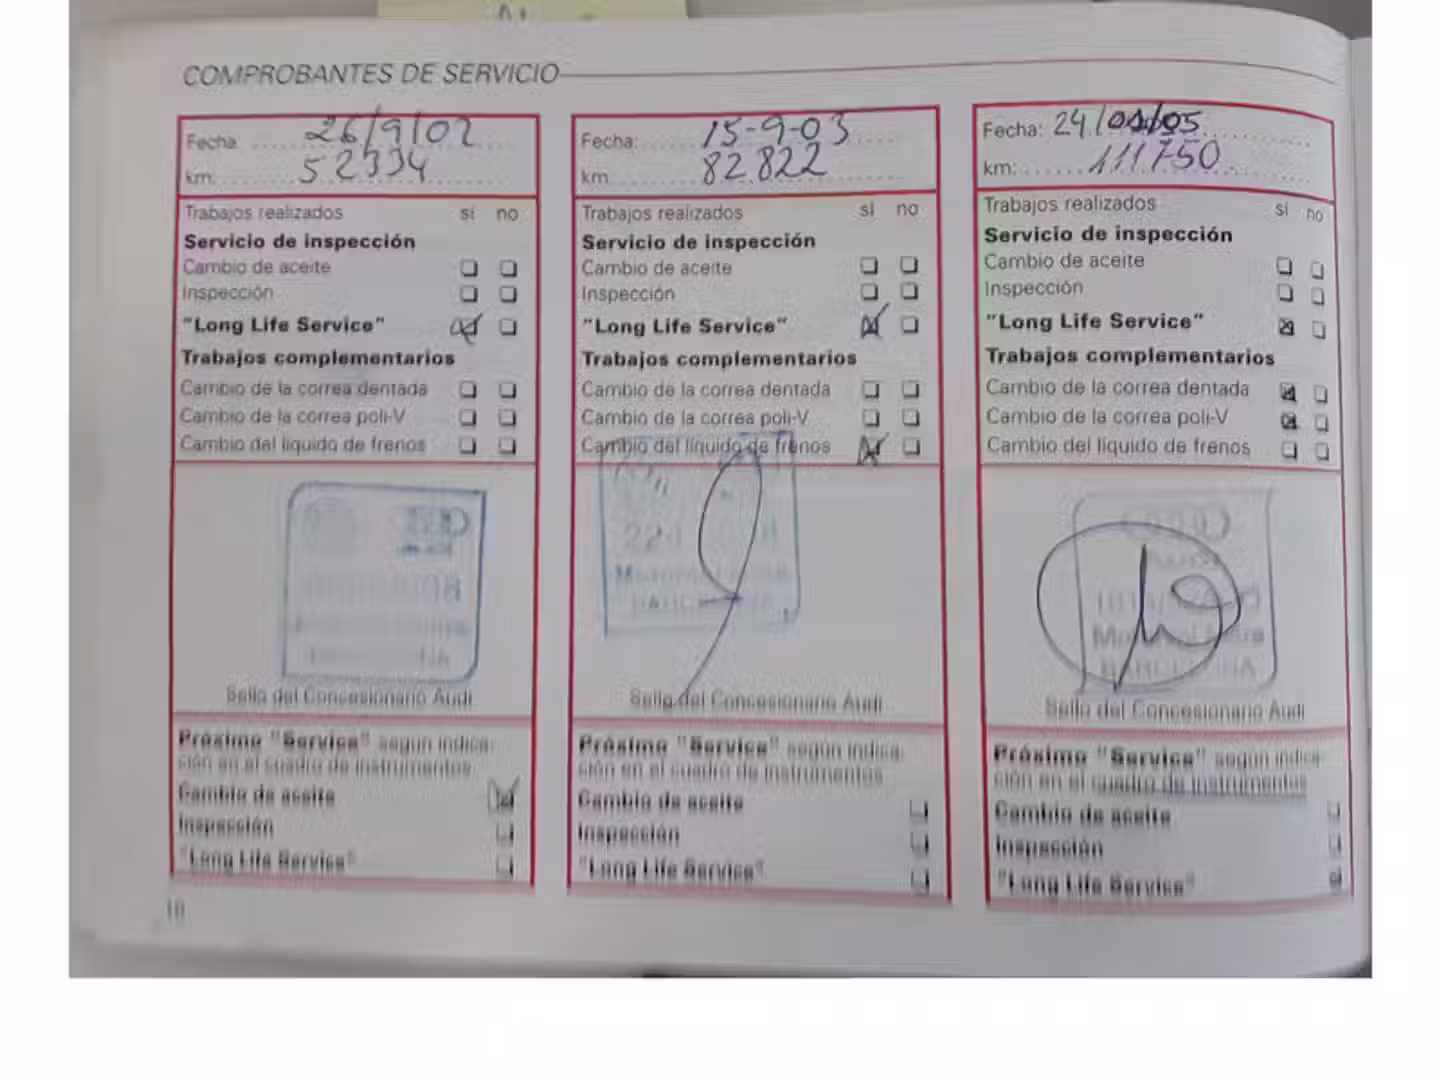 COMPROBANTES DE SERVICIO
Fecha: 26/9/02
km: 52334
Trabajos realizados sí no
Servicio de inspección
Cambio de aceite
Inspección
"Long Life Service"
Trabajos complementarios
Cambio de la correa dentada
Cambio de la correa poli-V
Cambio del líquido de frenos
Sello del Concesionario Audi
Próximo "Service" según indica-
ción en el cuadro de instrumentos
Cambio de aceite
Inspección
"Long Life Service"
Fecha: 15-9-03
km: 82.822
Trabajos realizados sí no
Servicio de inspección
Cambio de aceite
Inspección
"Long Life Service"
Trabajos complementarios
Cambio de la correa dentada
Cambio de la correa poli-V
Cambio del líquido de frenos
BARCELONA
Sello del Concesionario Audi
Próximo "Service" según indica-
ción en el cuadro de instrumentos
Cambio de aceite
Inspección
"Long Life Service"
Fecha: 24/01/05
km: 111750
Trabajos realizados sí no
Servicio de inspección
Cambio de aceite
Inspección
"Long Life Service"
Trabajos complementarios
Cambio de la correa dentada
Cambio de la correa poli-V
Cambio del líquido de frenos
Audi
BARCELONA
Sello del Concesionario Audi
Próximo "Service" según indica-
ción en el cuadro de instrumentos
Cambio de aceite
Inspección
"Long Life Service"
10